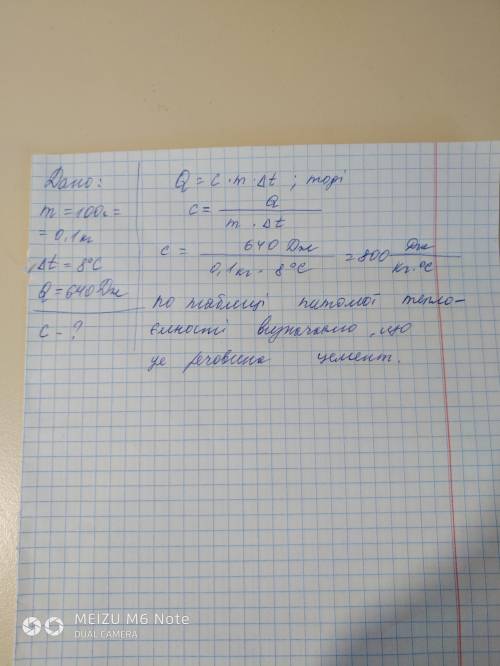 Дано:
m = 100г =
= 0,1кг
Δt = 8°C
Q = 640 Дж
c - ?
Q = c · m · Δt ; тоді
c = Q / m · Δt
c = 640 Дж / 0,1кг · 8°C = 800 Дж / кг·°C
по таблиці питомої тепло-
ємності визначаємо, що
це речовина цемент.
MEIZU M6 Note
DUAL CAMERA